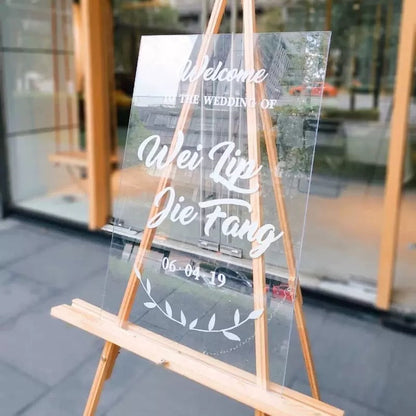 Welcome
TO THE WEDDING OF
Wei Lip
Jie Fang
06 . 04 . 19